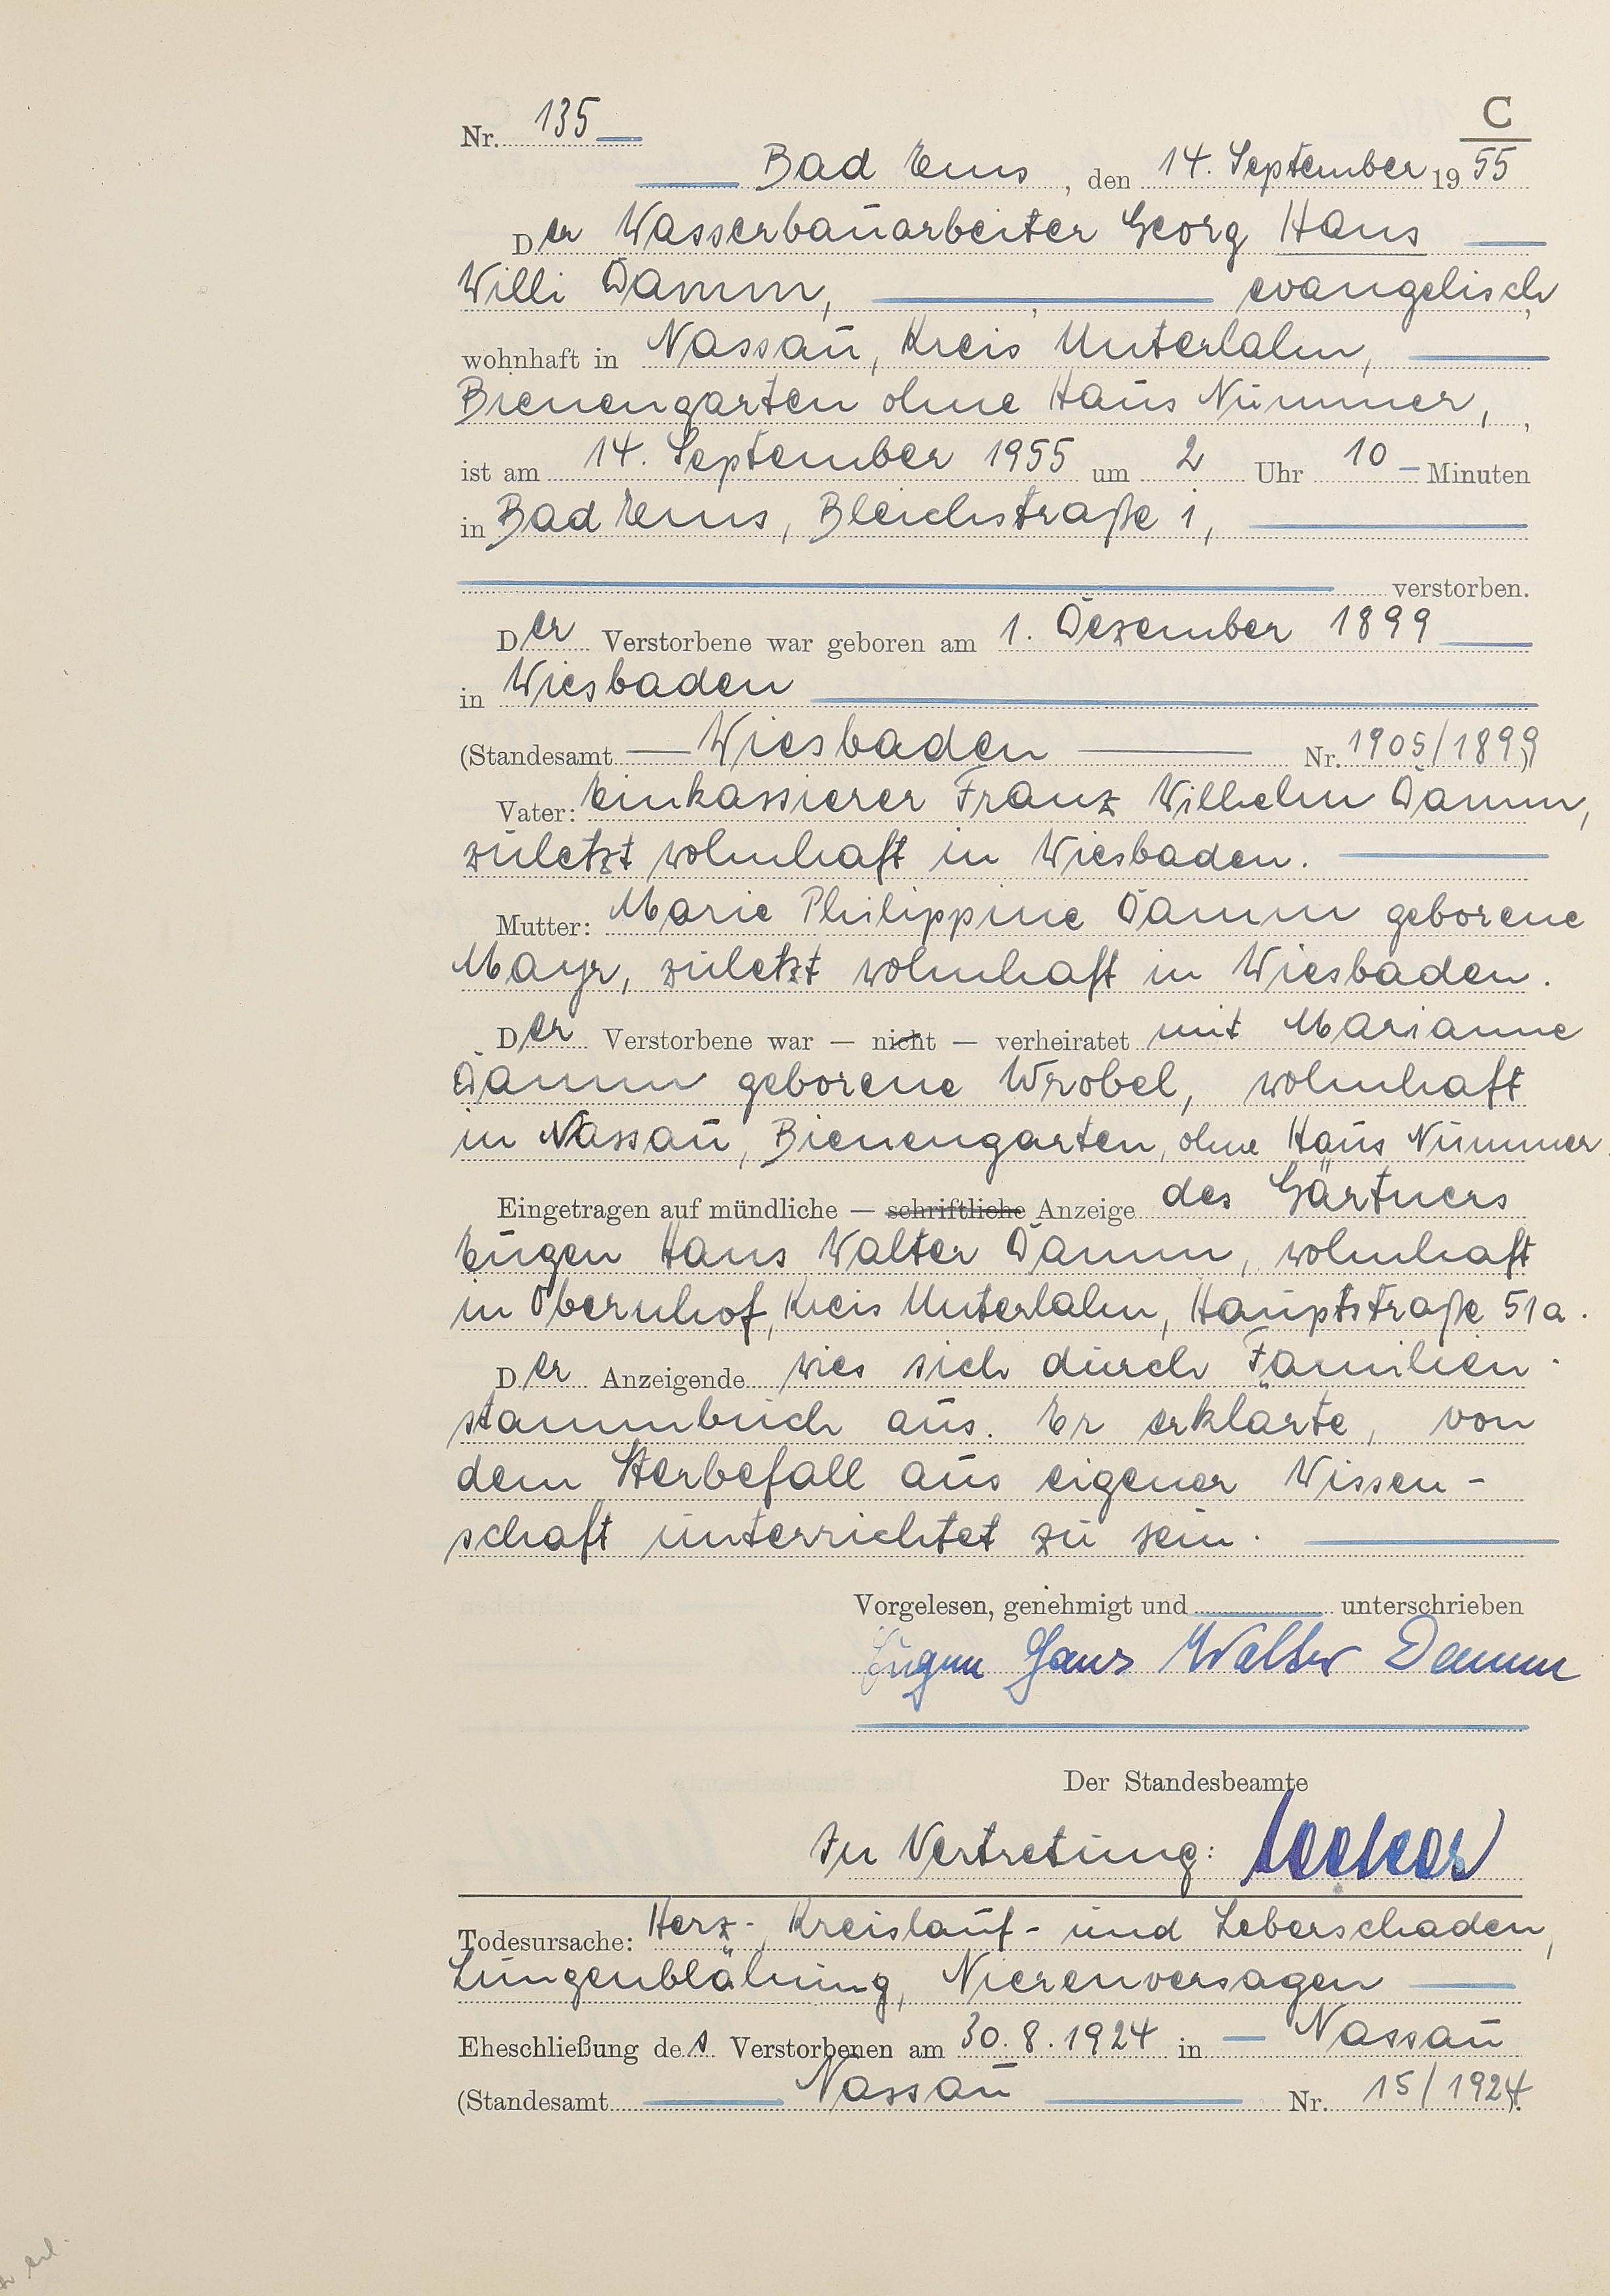 C
Nr. 135
Bad Ems, den 14. September 1955
Der Wasserbauarbeiter Georg Hans
Willi Damm, evangelisch,
wohnhaft in Nassau, Kreis Unterlahn,
Bienengarten ohne Haus Nummer,
ist am 14. September 1955 um 2 Uhr 10 Minuten
in Bad Ems, Bleichstraße 1,
verstorben.
Der Verstorbene war geboren am 1. Dezember 1899
in Wiesbaden
(Standesamt Wiesbaden Nr. 1905/1899)
Vater: Einkassierer Franz Wilhelm Damm,
zuletzt wohnhaft in Wiesbaden.
Mutter: Marie Philippine Damm geborene
Mayr, zuletzt wohnhaft in Wiesbaden.
Der Verstorbene war — nicht — verheiratet mit Marianne
Damm geborene Wrobel, wohnhaft
in Nassau, Bienengarten, ohne Haus Nummer.
Eingetragen auf mündliche — schriftliche Anzeige des Gärtners
Eugen Hans Walter Damm, wohnhaft
in Obernhof, Kreis Unterlahn, Hauptstraße 51a.
Der Anzeigende wies sich durch Familien-
stammbuch aus. Er erklärte, von
dem Sterbefall aus eigener Wissen-
schaft unterrichtet zu sein.
Vorgelesen, genehmigt und unterschrieben
Eugen Hans Walter Damm
Der Standesbeamte
In Vertretung:
Todesursache: Herz-, Kreislauf- und Leberschaden,
Lungenblähung, Nierenversagen
Eheschließung des Verstorbenen am 30.8.1924 in Nassau
(Standesamt Nassau Nr. 15/1924).